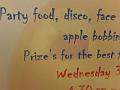 Party food, disco, face
apple bobbin
Prize's for the best f
Wednesday 3